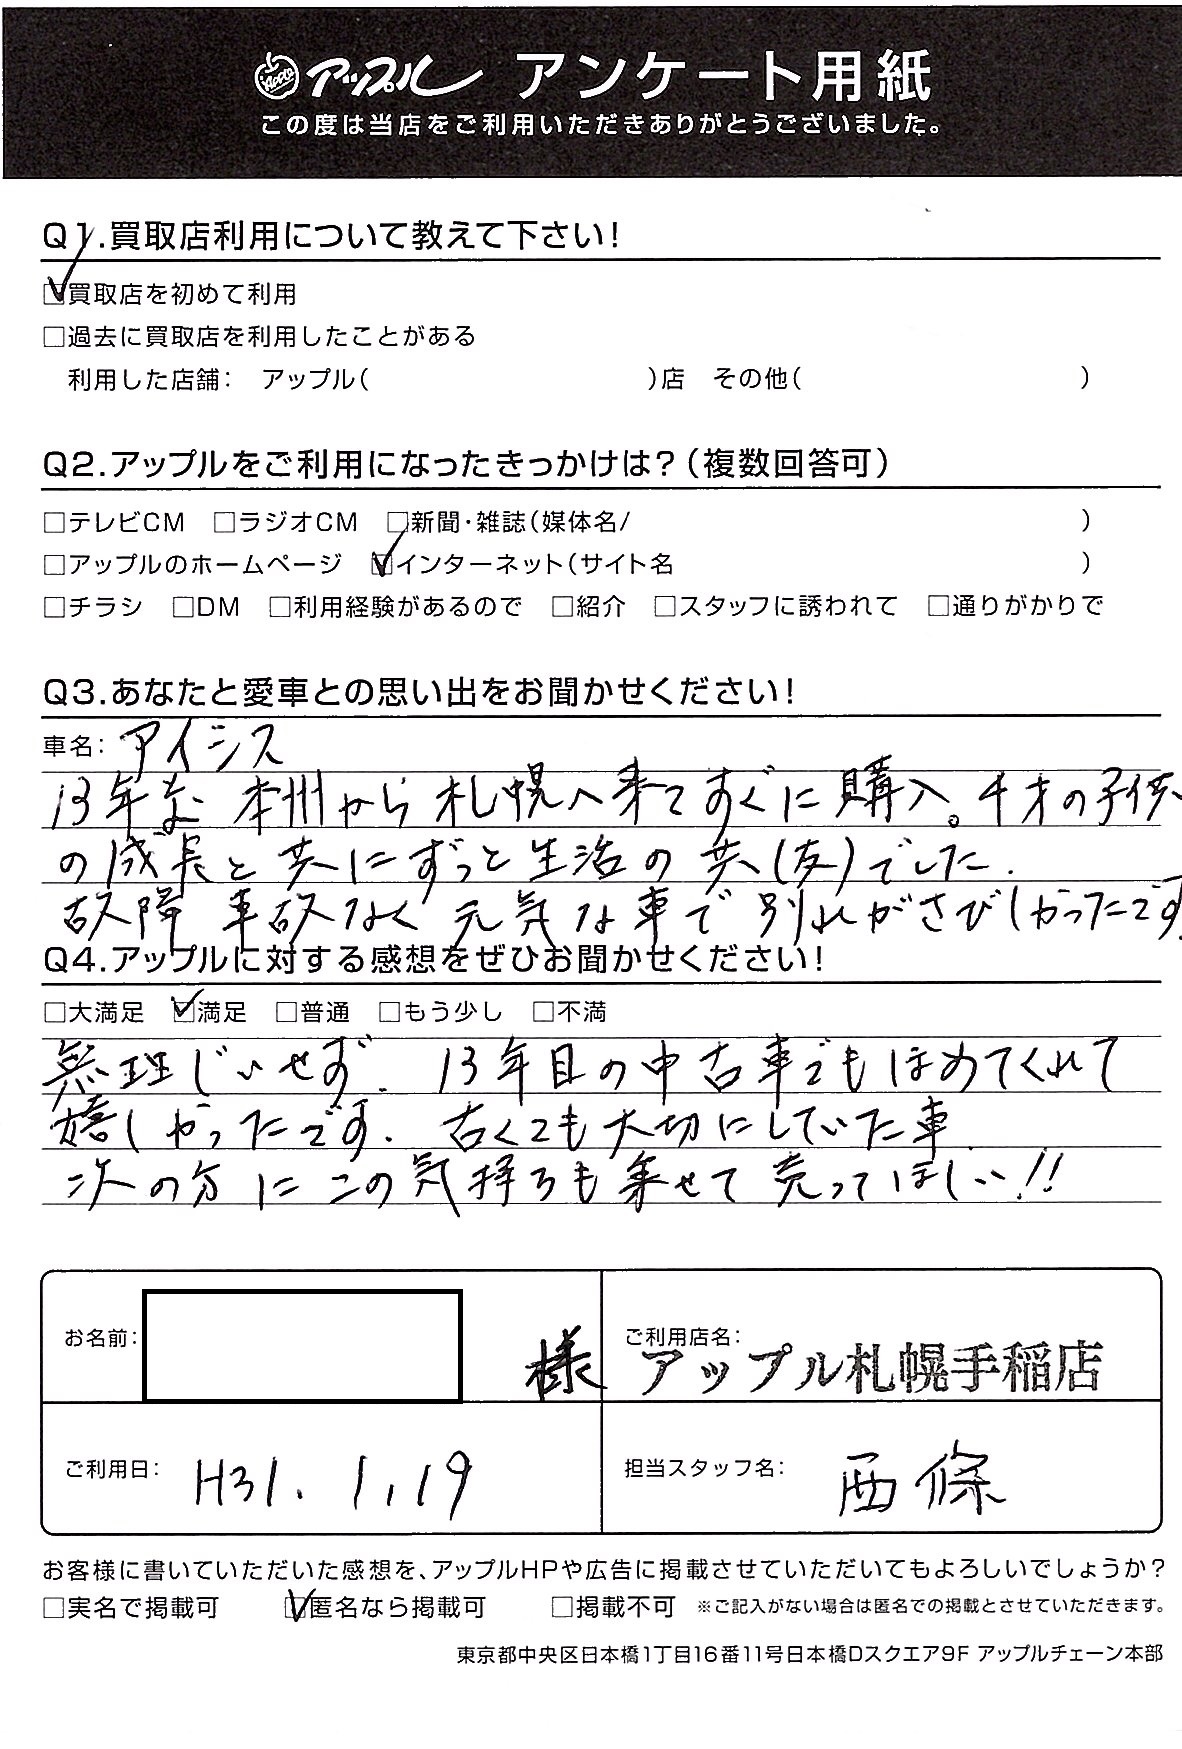 Apple アップル アンケート用紙
この度は当店をご利用いただきありがとうございました。
Q1.買取店利用について教えて下さい!
☑買取店を初めて利用
□過去に買取店を利用したことがある
利用した店舗: アップル( )店 その他( )
Q2.アップルをご利用になったきっかけは?(複数回答可)
□テレビCM □ラジオCM □新聞・雑誌(媒体名/ )
□アップルのホームページ ☑インターネット(サイト名 )
□チラシ □DM □利用経験があるので □紹介 □スタッフに誘われて □通りがかりで
Q3.あなたと愛車との思い出をお聞かせください!
車名: アイシス
13年前 本州から札幌へ来てすぐに購入。4才の子供
の成長と共にずっと生活の共(友)でした.
故障 事故なく 元気な車で別れがさびしかったです.
Q4.アップルに対する感想をぜひお聞かせください!
□大満足 ☑満足 □普通 □もう少し □不満
無理じいせず. 13年目の中古車でもほめてくれて
嬉しかったです. 古くても大切にしていた車.
次の方にこの気持ちも乗せて売ってほしい!!
お名前: 様
ご利用店名: アップル札幌手稲店
ご利用日: H31.1.19
担当スタッフ名: 西條
お客様に書いていただいた感想を、アップルHPや広告に掲載させていただいてもよろしいでしょうか?
□実名で掲載可 ☑匿名なら掲載可 □掲載不可 ※ご記入がない場合は匿名での掲載とさせていただきます。
東京都中央区日本橋1丁目16番11号日本橋Dスクエア9F アップルチェーン本部